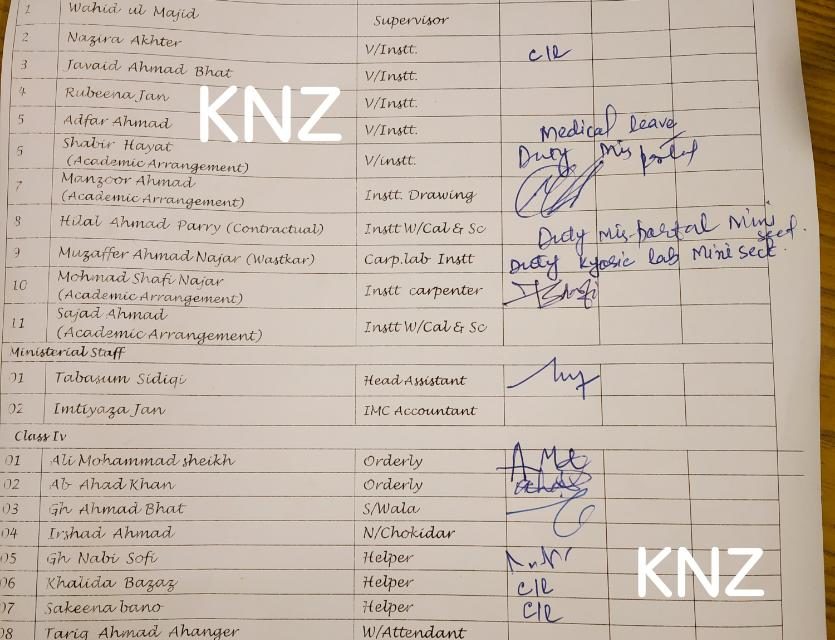 1 Wahid ul Majid Supervisor
2 Nazira Akhter V/Instt. C/R
3 Javaid Ahmad Bhat V/Instt.
4 Rubeena Jan V/Instt.
KNZ
5 Adfar Ahmad V/Instt. Medical leave
6 Shabir Hayat V/instt. Duty Mis portal
(Academic Arrangement)
7 Manzoor Ahmad Instt. Drawing
(Academic Arrangement)
8 Hilal Ahmad Parry (Contractual) Instt W/Cal & Sc Duty Mis-portal Mini sect.
9 Muzaffer Ahmad Najar (Wastkar) Carp.lab Instt Duty Kyosic lab Mini sect.
10 Mohmad Shafi Najar Instt carpenter
(Academic Arrangement)
11 Sajad Ahmad Instt W/Cal & Sc
(Academic Arrangement)
Ministerial Staff
01 Tabasum Sidiqi Head Assistant
02 Imtiyaza Jan IMC Accountant
Class Iv
01 Ali Mohammad sheikh Orderly
02 Ab Ahad Khan Orderly
03 Gh Ahmad Bhat S/Wala
04 Irshad Ahmad N/Chokidar
05 Gh Nabi Sofi Helper
06 Khalida Bazaz Helper C/R
KNZ
07 Sakeena bano Helper C/R
08 Tariq Ahmad Ahanger W/Attendant